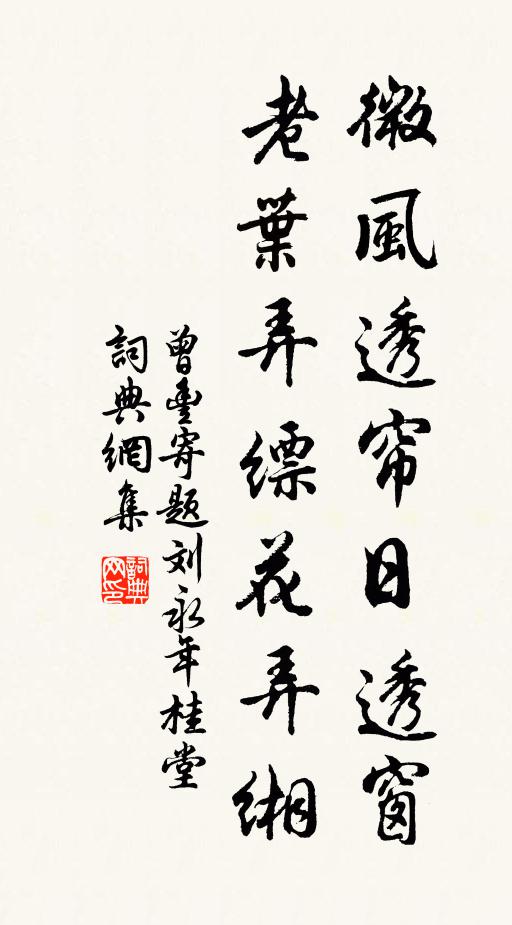 微風透帘日透窗
老葉弄縹花弄緗
曾豐寄题刘永年桂堂
詞典網集
詞典网印